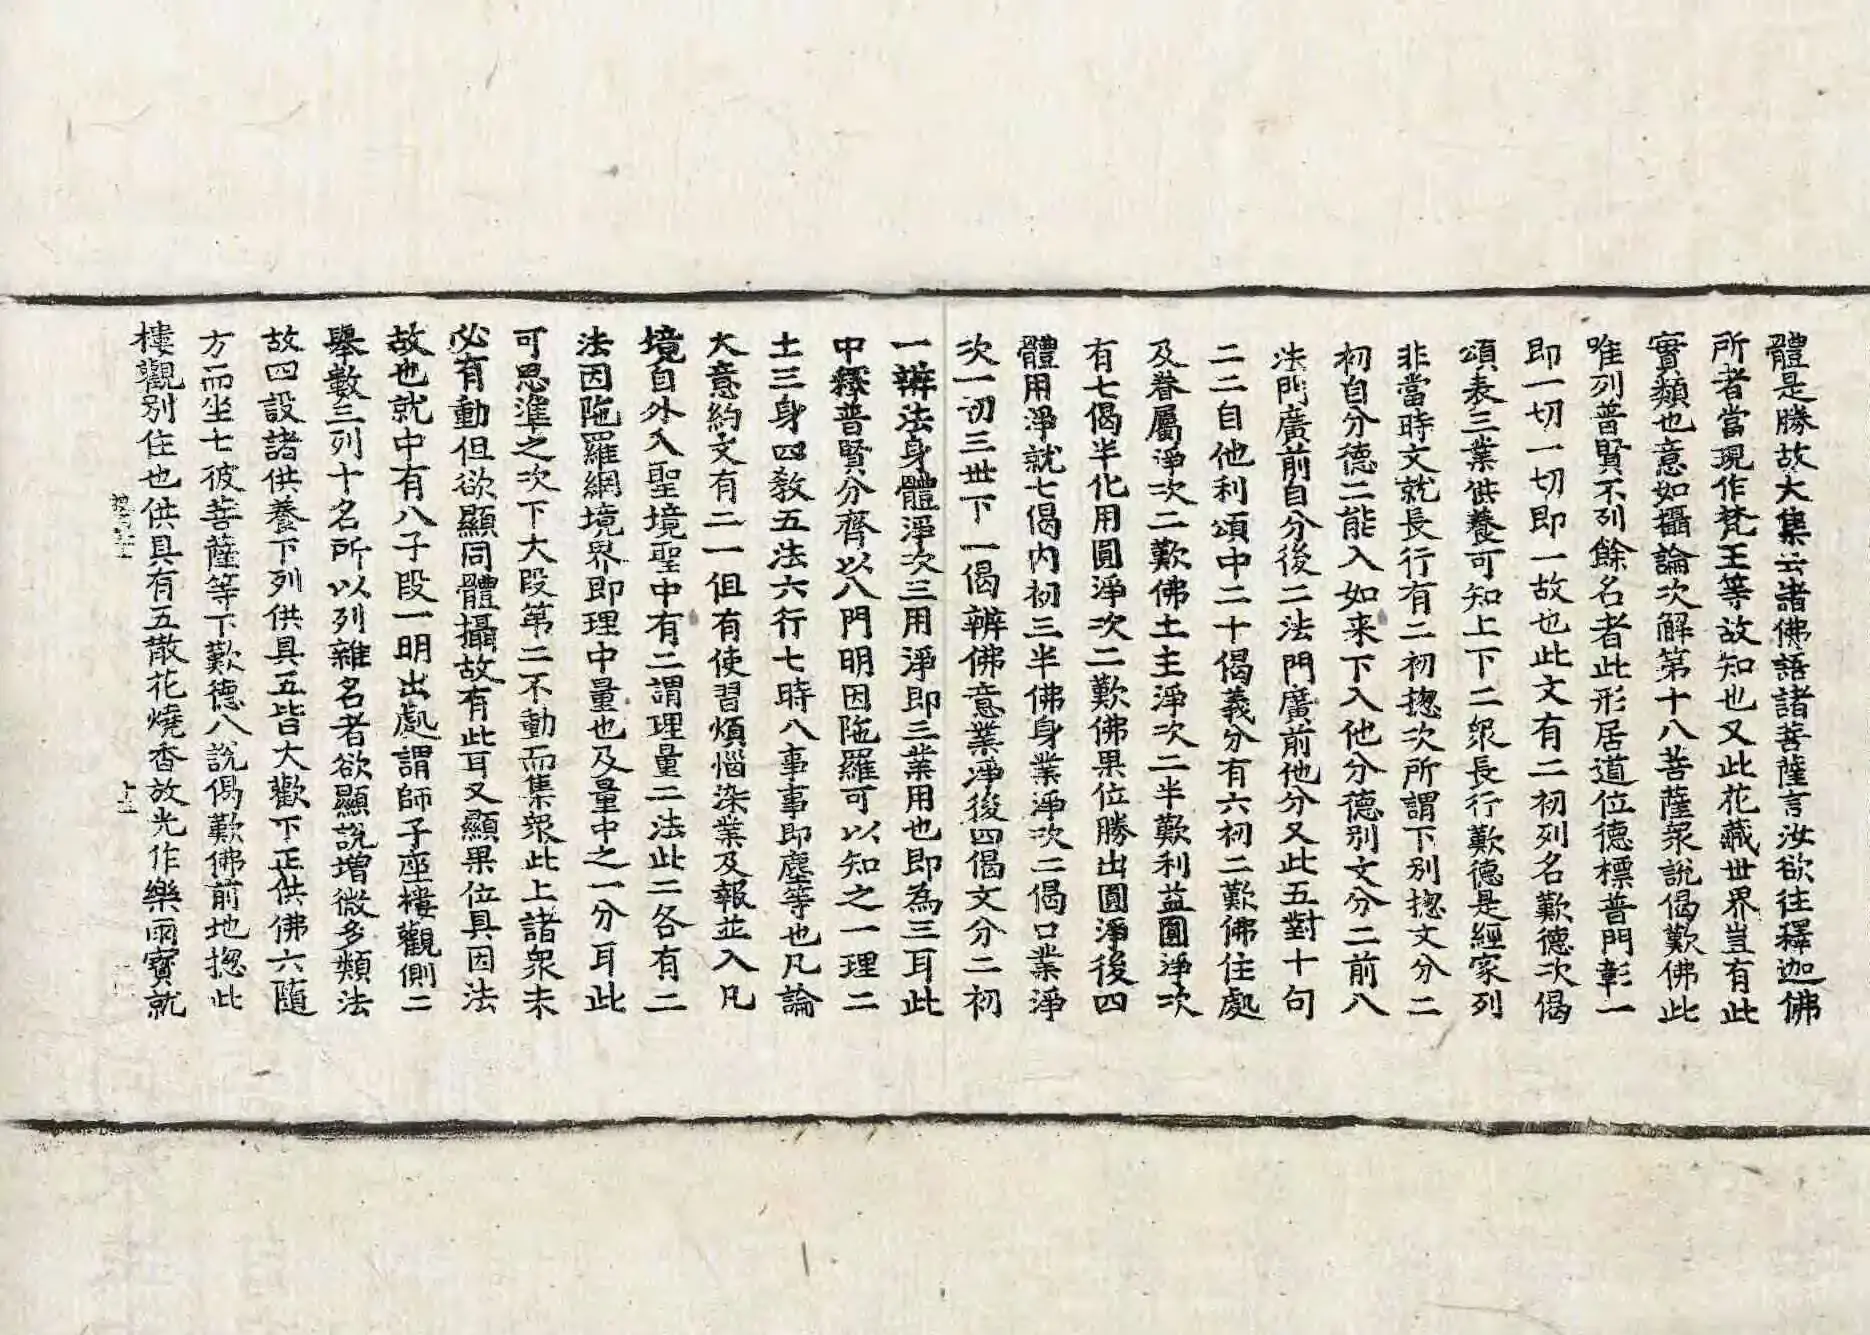 體是勝故大集云諸佛語諸菩薩言汝欲往釋迦佛
所者當現作梵王等故知也又此花藏世界豈有此
實類也意如攝論次解第十八菩薩衆說偈歎佛此
唯列普賢不列餘名者此形居道位德標普門彰一
即一切一切即一故也此文有二初列名歎德次偈
頌表三業供養可知上下二衆長行歎德是經家列
非當時文就長行有二初揔次所謂下別揔文分二
初自分德二能入如来下入他分德別文分二前八
法門廣前自分後二法門廣前他分又此五對十句
二二自他利頌中二十偈義分有六初二歎佛住處
及眷屬淨次二歎佛土主淨次二半歎利益圓淨次
有七偈半化用圓淨次二歎佛果位勝出圓淨後四
體用淨就七偈內初三半佛身業淨次二偈口業淨
次一切三世下一偈辨佛意業淨後四偈文分二初
一辨法身體淨次三用淨即三業用也即為三耳此
中釋普賢分齊以八門明因陁羅可以知之一理二
土三身四教五法六行七時八事事即塵等也凡論
大意約文有二一但有使習煩惱染業及報並入凡
境自外入聖境聖中有二謂理量二法此二各有二
法因陁羅網境界即理中量也及量中之一分耳此
可思準之次下大段第二不動而集衆此上諸衆未
必有動但欲顯同體攝故有此耳又顯果位具因法
故也就中有八子段一明出處謂師子座樓觀側二
舉數三列十名所以列雜名者欲顯說增微多類法
故四設諸供養下列供具五皆大歡下正供佛六隨
方而坐七彼菩薩等下歎德八說偈歎佛前地揔此
樓觀別住也供具有五散花燒香放光作樂雨寳就